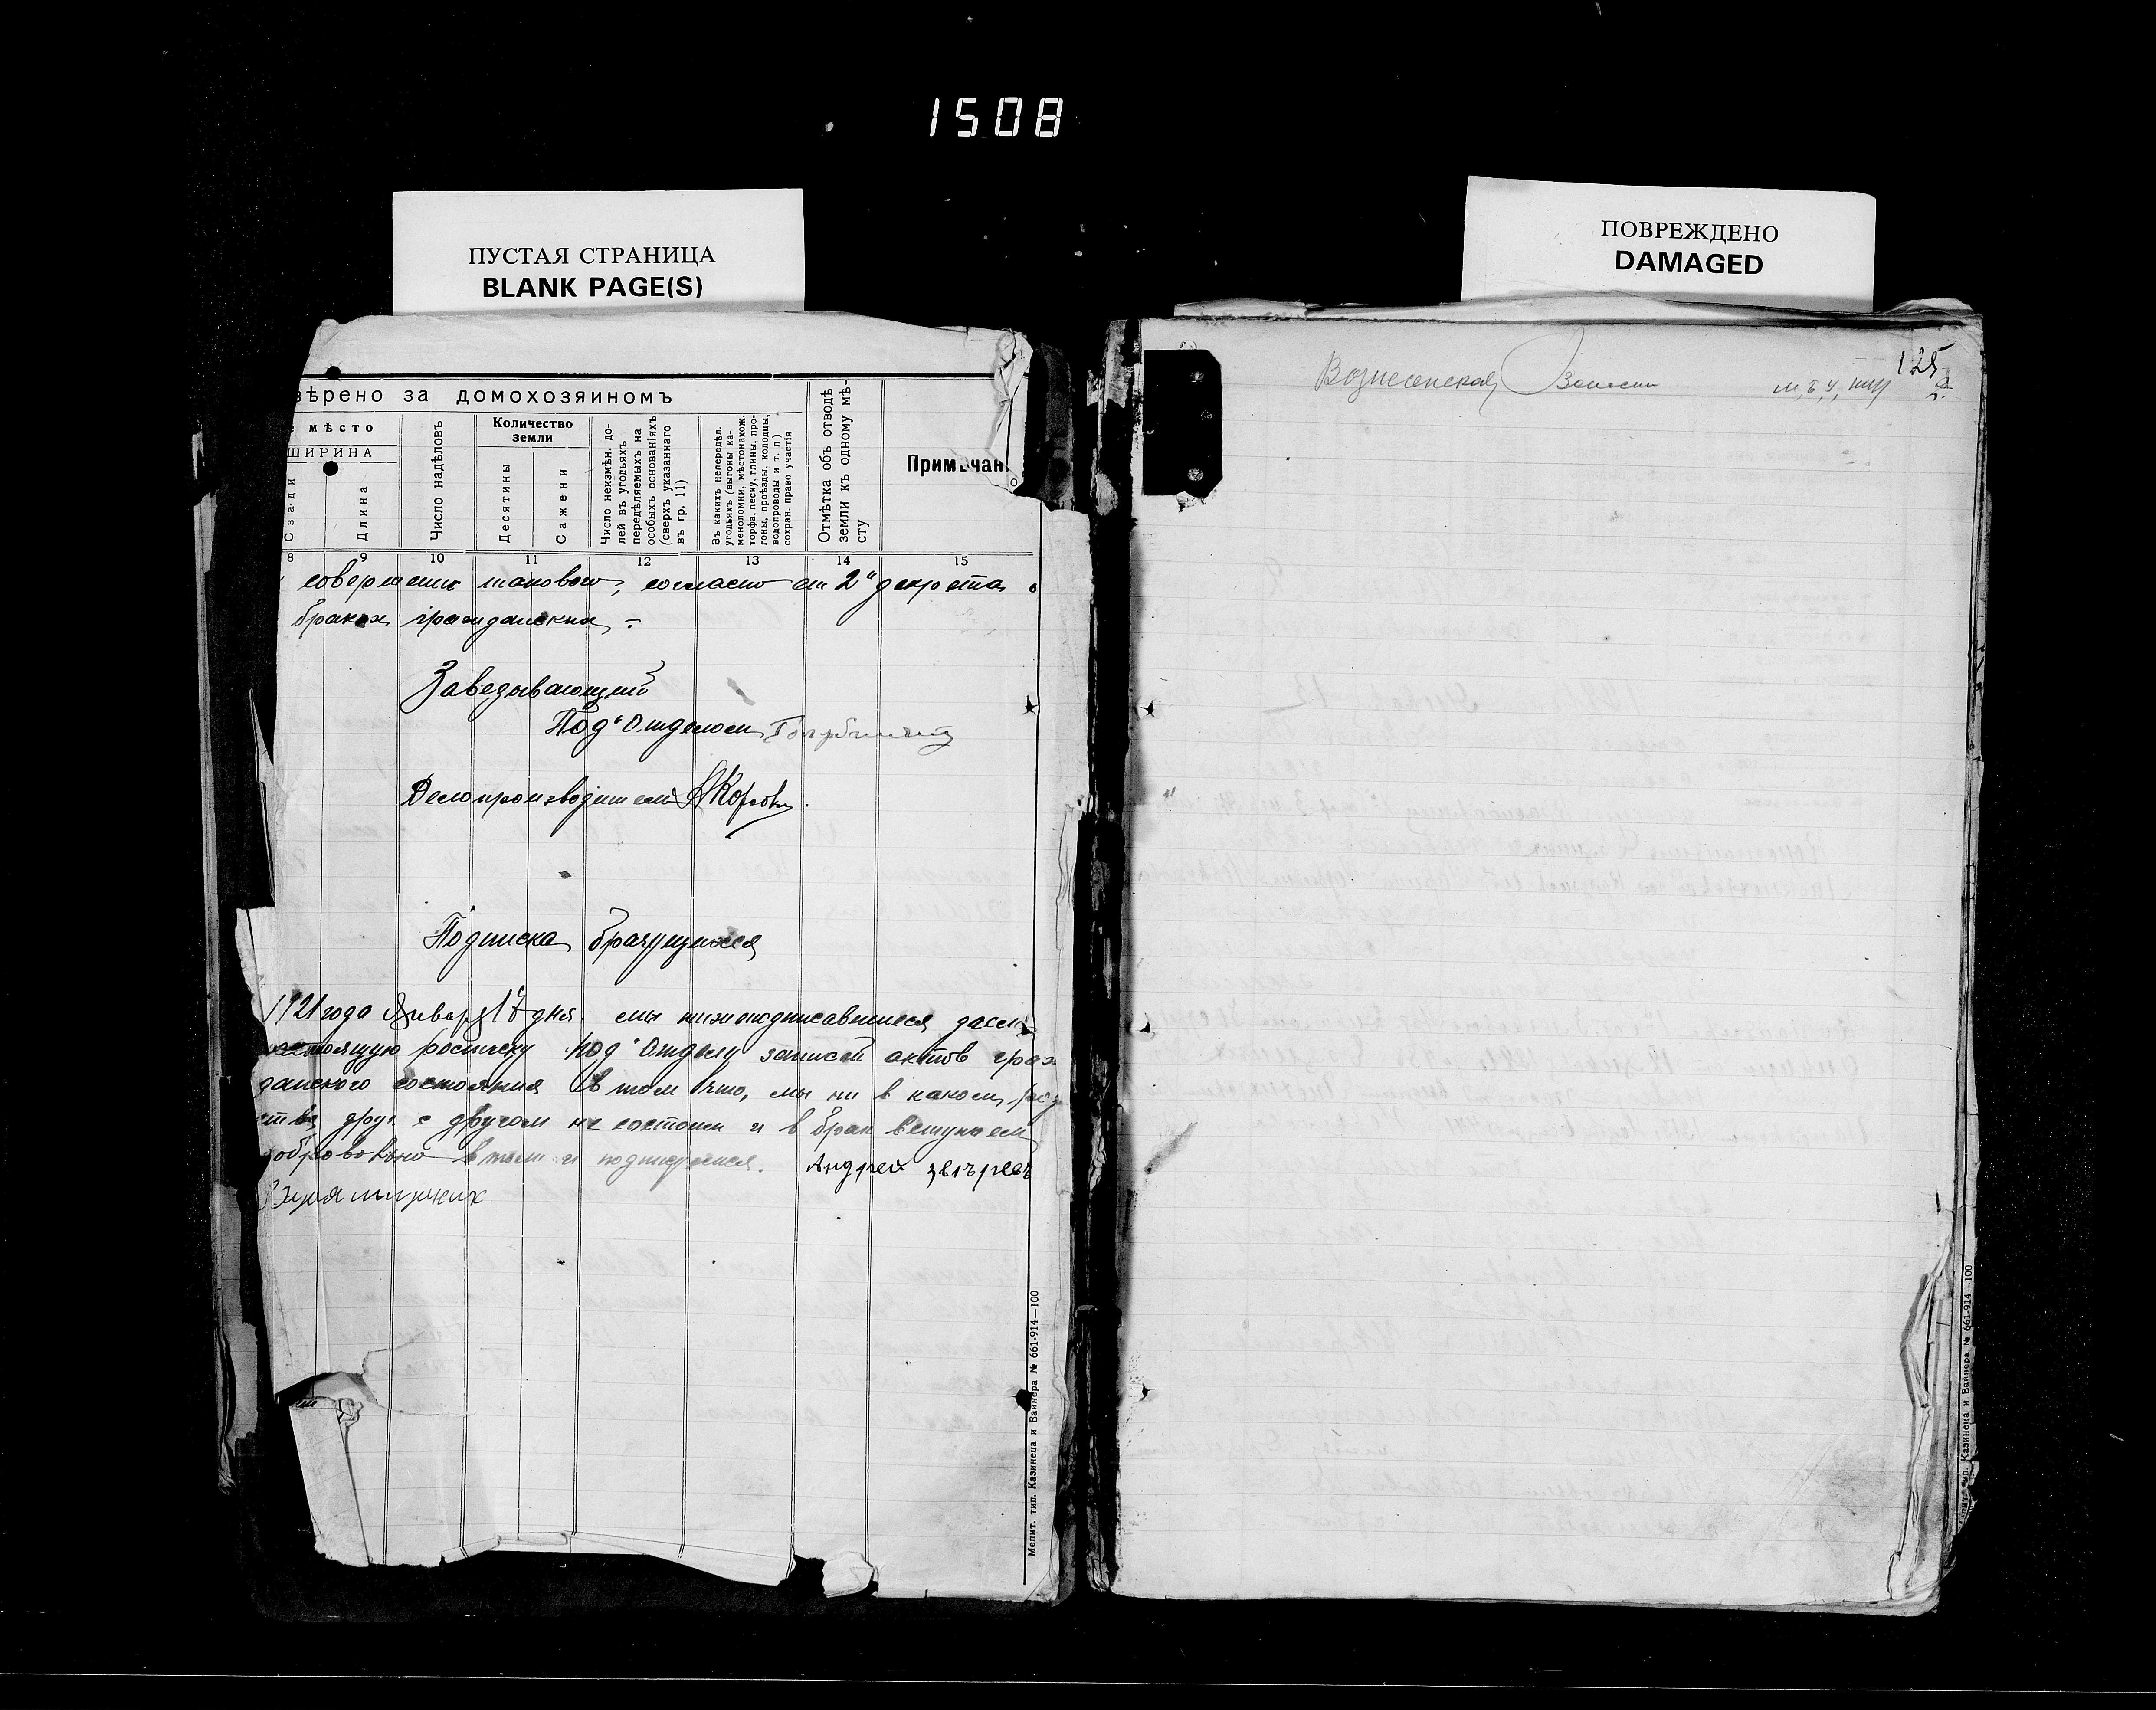 1508
ПУСТАЯ СТРАНИЦА
BLANK PAGE(S)
вѣрено за домохозяиномъ
е мѣсто
ШИРИНА
Сзади
Длина
Число надѣловъ
Количество
земли
Десятины
Сажени
Число неизмѣн. до-
лей въ угодьяхъ
передѣляемыхъ на
особыхъ основаніяхъ
(сверхъ указаннаго
въ гр. 11)
Въ какихъ непередѣл.
угодьяхъ (выгоны ка-
меноломни, мѣстонахож.
торфа, песку, глины, про-
гоны, проѣзды, колодцы,
водопроводы и т. п)
сохран. право участія
Отмѣтка объ отводѣ
земли къ одному мѣ-
сту
Примѣчан
8 9 10 11 12 13 14 15
совершению такового, согласно ст 2" декрета о
браках гражданских
Заведывающий
Под'Отделом
Делопроизводитель
Подписка брачущихся
1921 года Января 17 дня. мы нижеподписавшиеся даем
настоящую росписку под'Отделу записи актов граж
данского состояния в том что, мы ни в каком род
стве друг с другом не состоим и в брак вступаем
добровольно в том и подписуемся. Андрей
Мепит. тип. Казинеца и Вайнера № 661-914—100
ПОВРЕЖДЕНО
DAMAGED
125
Вознесенская
Мепит. тип. Казинеца и Вайнера № 661-914—100